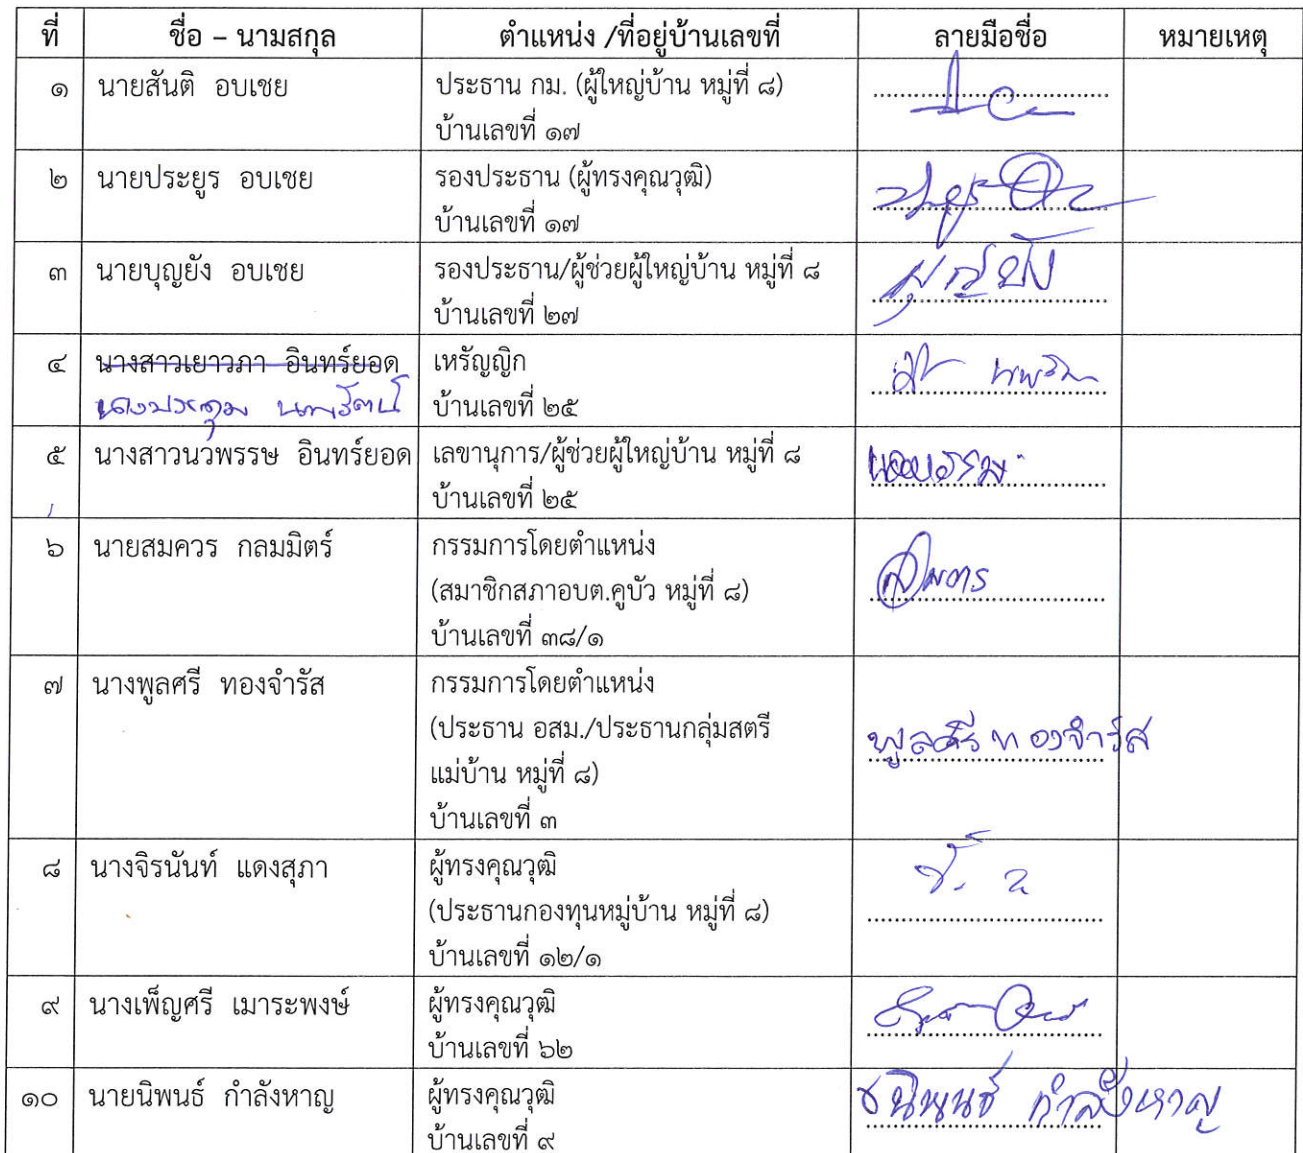 ที่ ชื่อ – นามสกุล ตำแหน่ง /ที่อยู่บ้านเลขที่ ลายมือชื่อ หมายเหตุ
๑ นายสันติ อบเชย ประธาน กม. (ผู้ใหญ่บ้าน หมู่ที่ ๘)
บ้านเลขที่ ๑๗
๒ นายประยูร อบเชย รองประธาน (ผู้ทรงคุณวุฒิ)
บ้านเลขที่ ๑๗
๓ นายบุญยัง อบเชย รองประธาน/ผู้ช่วยผู้ใหญ่บ้าน หมู่ที่ ๘ บุญยัง
บ้านเลขที่ ๒๗
๔ นางสาวเยาวภา อินทร์ยอด เหรัญญิก
นางประทุม นพรัตน์ บ้านเลขที่ ๒๕
๕ นางสาวนวพรรษ อินทร์ยอด เลขานุการ/ผู้ช่วยผู้ใหญ่บ้าน หมู่ที่ ๘
บ้านเลขที่ ๒๕
๖ นายสมควร กลมมิตร์ กรรมการโดยตำแหน่ง
(สมาชิกสภาอบต.คูบัว หมู่ที่ ๘)
บ้านเลขที่ ๓๘/๑
๗ นางพูลศรี ทองจำรัส กรรมการโดยตำแหน่ง
(ประธาน อสม./ประธานกลุ่มสตรี พูลศรี ทองจำรัส
แม่บ้าน หมู่ที่ ๘)
บ้านเลขที่ ๓
๘ นางจิรนันท์ แดงสุภา ผู้ทรงคุณวุฒิ
(ประธานกองทุนหมู่บ้าน หมู่ที่ ๘)
บ้านเลขที่ ๑๒/๑
๙ นางเพ็ญศรี เมาระพงษ์ ผู้ทรงคุณวุฒิ
บ้านเลขที่ ๖๒
๑๐ นายนิพนธ์ กำลังหาญ ผู้ทรงคุณวุฒิ นิพนธ์ กำลังหาญ
บ้านเลขที่ ๙